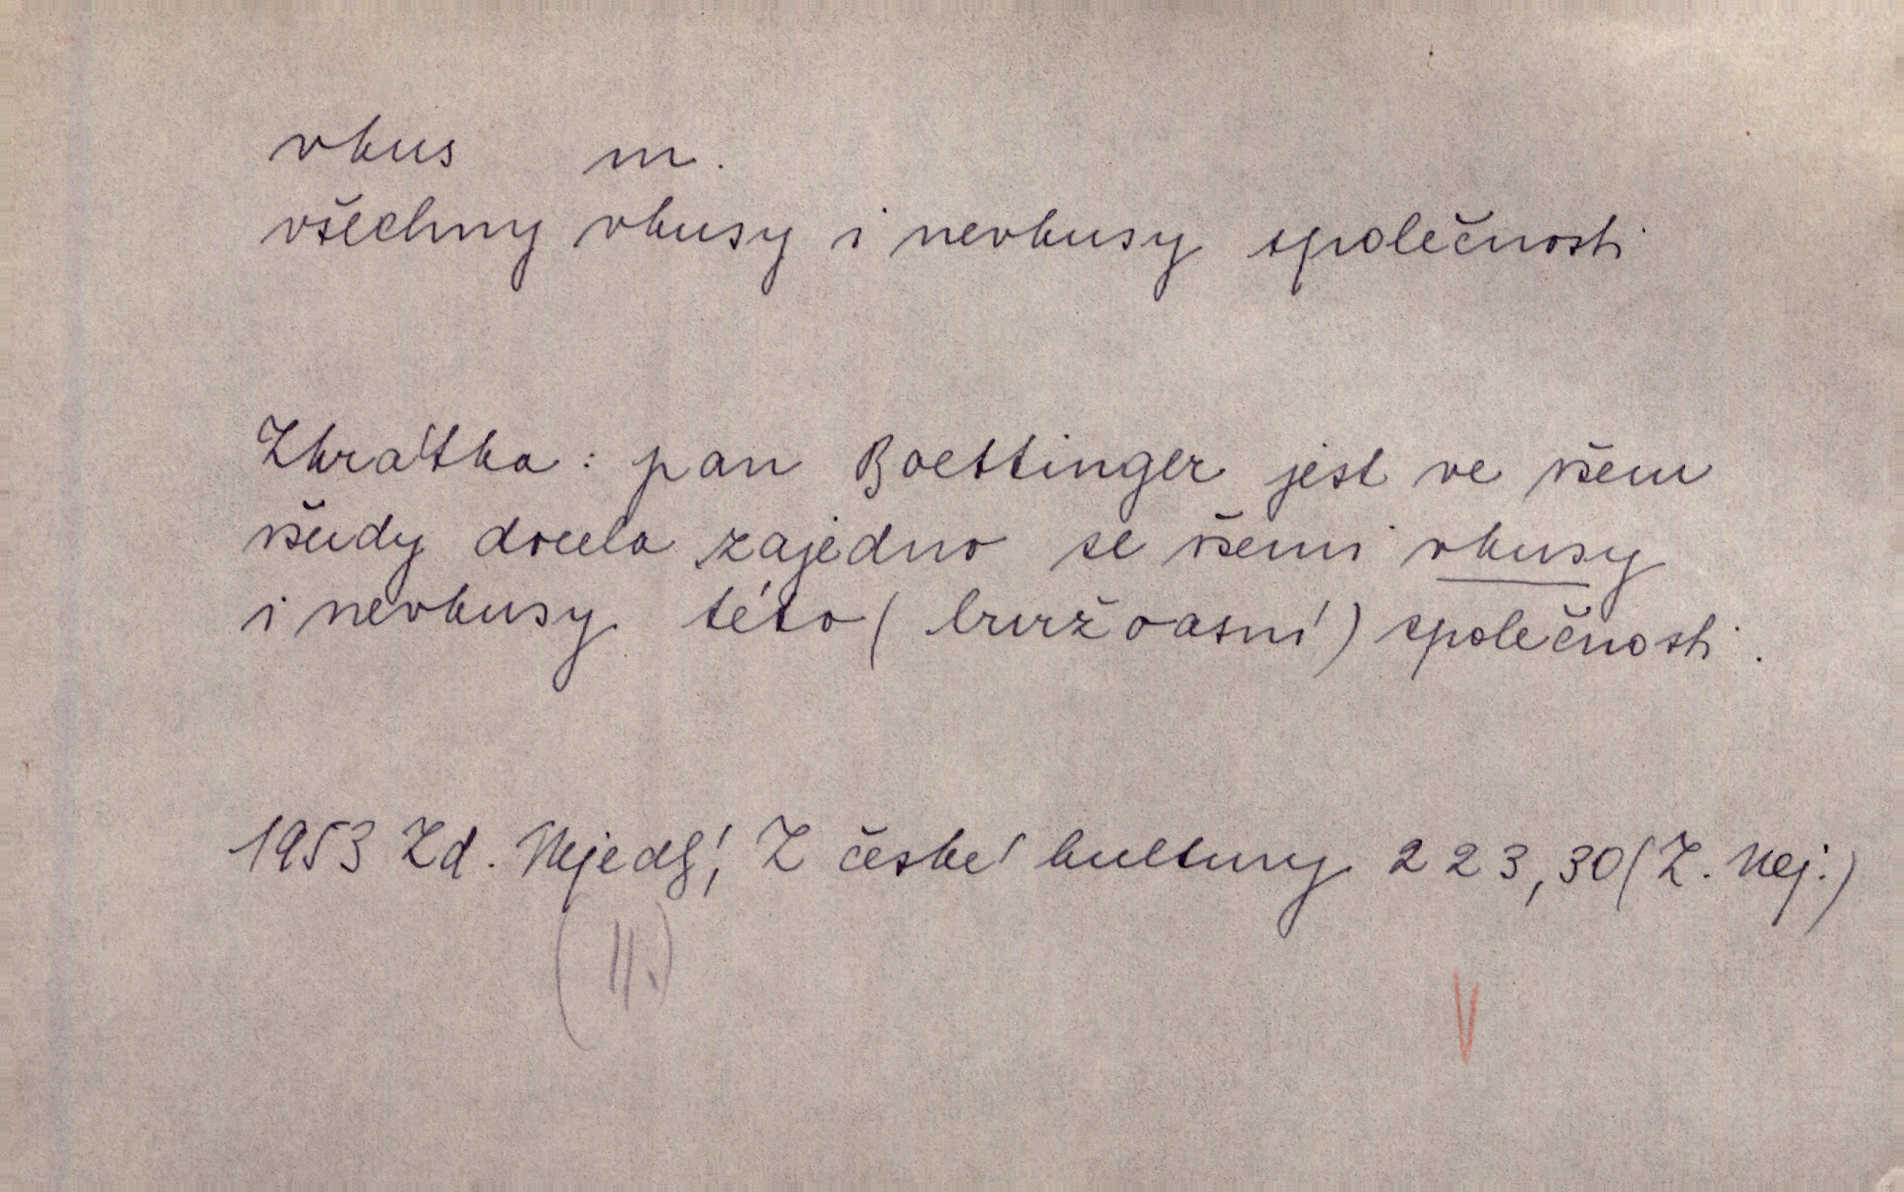 vkus m.
všechny vkusy i nevkusy společnosti
Zkrátka: pan Boettinger jest ve všem
všudy docela zajedno se všemi vkusy
i nevkusy této (buržoasní) společnosti.
1953 Zd. Nejedlý, Z české kultury 223,30 (Z. Nej.)
(II.)
V